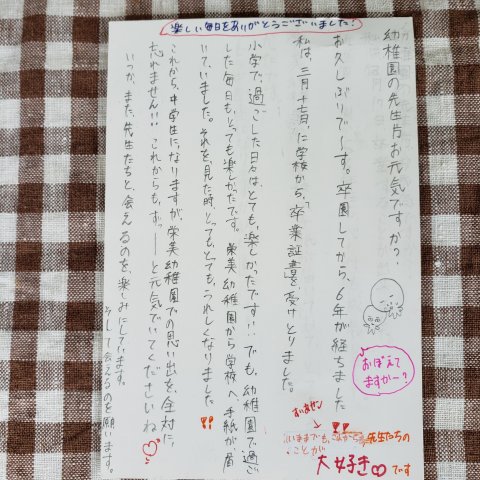 楽しい毎日をありがとうございました!
幼稚園の先生方お元気ですか?
お久しぶりで〜す。卒園してから、6年が経ちました!!
私は、三月十七日に学校から、「卒業証書」を受けとりました。
小学で、過ごした日々は、とても、楽しかったです!!でも、幼稚園で過ご
した毎日も、とっても楽しかったです。栄美幼稚園から学校へ、手紙が届
いて、いました。それを、見た時、とっても、とっても、うれしくなりました!!
これから、中学生に、なりますが、栄美幼稚園での思い出を、全対に、
忘れません!!これからも、ずっ——と元気でいてくださいね
いつか、また、先生たちと、会えるのを、楽しみにしてます。
そして会えるのを願います。
おぼえて
ますかー?
いままでも、
先生たちの
ことが
大好き
です